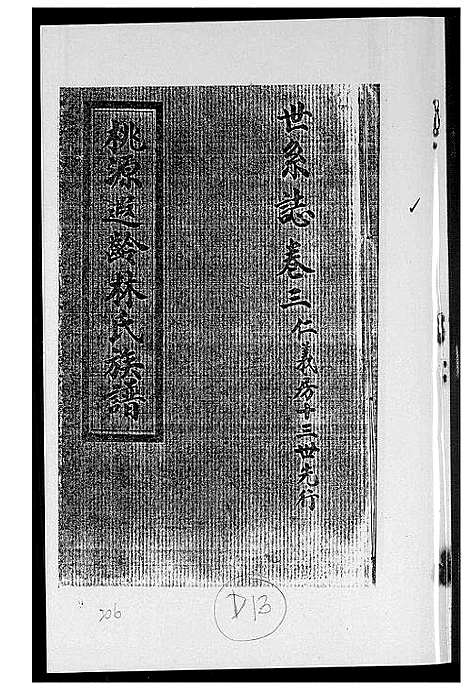 世系誌卷三仁義房十三世元行
桃源遐齡林氏族譜
206
D13